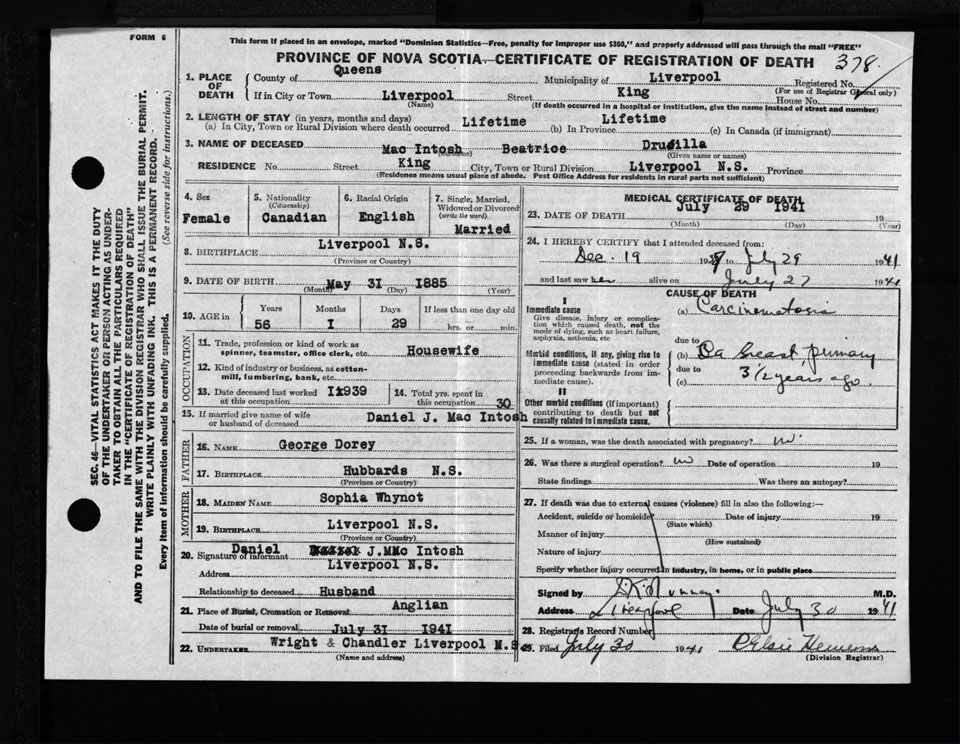 FORM 6
This form if placed in an envelope, marked "Dominion Statistics—Free, penalty for improper use $350," and properly addressed will pass through the mail "FREE"
PROVINCE OF NOVA SCOTIA—CERTIFICATE OF REGISTRATION OF DEATH
378
SEC. 46—VITAL STATISTICS ACT MAKES IT THE DUTY
OF THE UNDERTAKER OR PERSON ACTING AS UNDER-
TAKER TO OBTAIN ALL THE PARTICULARS REQUIRED
IN THE "CERTIFICATE OF REGISTRATION OF DEATH"
AND TO FILE THE SAME WITH THE DIVISION REGISTRAR WHO SHALL ISSUE THE BURIAL PERMIT.
WRITE PLAINLY WITH UNFADING INK. THIS IS A PERMANENT RECORD.
Every item of information should be carefully supplied. (See reverse side for instructions.)
1. PLACE OF DEATH
County of Queens Municipality of Liverpool Registered No.
(For use of Registrar General only)
If in City or Town Liverpool Street King House No.
(Name) (If death occurred in a hospital or institution, give the name instead of street and number)
2. LENGTH OF STAY (in years, months and days)
(a) In City, Town or Rural Division where death occurred Lifetime (b) In Province Lifetime (c) In Canada (if immigrant)
3. NAME OF DECEASED Mac Intosh Beatrice Drucilla
(Surname) (Given name or names)
RESIDENCE No. Street King City, Town or Rural Division Liverpool N.S. Province
(Residence means usual place of abode. Post Office Address for residents in rural parts not sufficient)
4. Sex
Female
5. Nationality
(Citizenship)
Canadian
6. Racial Origin
English
7. Single, Married,
Widowed or Divorced
(write the word)
Married
8. BIRTHPLACE Liverpool N.S.
(Province or Country)
9. DATE OF BIRTH May 31 1885
(Month) (Day) (Year)
10. AGE in Years Months Days If less than one day old
56 I 29 hrs. or min.
OCCUPATION
11. Trade, profession or kind of work as
spinner, teamster, office clerk, etc. Housewife
12. Kind of industry or business, as cotton-
mill, lumbering, bank, etc.
13. Date deceased last worked
at this occupation 1939
14. Total yrs. spent in
this occupation 30
15. If married give name of wife
or husband of deceased Daniel J. Mac Intosh
FATHER
16. NAME George Dorey
17. BIRTHPLACE Hubbards N.S.
(Province or Country)
MOTHER
18. MAIDEN NAME Sophia Whynot
19. BIRTHPLACE Liverpool N.S.
(Province or Country)
20. Signature of informant Daniel J. Mac Intosh
Address Liverpool N.S.
Relationship to deceased Husband
21. Place of Burial, Cremation or Removal Anglian
Date of burial or removal July 31 1941
22. UNDERTAKER Wright & Chandler Liverpool N.S
(Name and address)
MEDICAL CERTIFICATE OF DEATH
23. DATE OF DEATH July 29 1941 19
(Month) (Day) (Year)
24. I HEREBY CERTIFY that I attended deceased from:
Dec. 19 19 to July 29 1941
and last saw her alive on July 27 1941
CAUSE OF DEATH
I
Immediate cause
Give disease, injury or complica-
tion which caused death, not the
mode of dying, such as heart failure,
asphyxia, asthenia, etc
(a) Carcinomatosis
due to
Morbid conditions, if any, giving rise to
immediate cause (stated in order
proceeding backwards from im-
mediate cause).
(b) Ca breast primary
due to 3 1/2 years ago.
(c)
II
Other morbid conditions (if important)
contributing to death but not
causally related to immediate cause.
25. If a woman, was the death associated with pregnancy? no
26. Was there a surgical operation? no Date of operation 19
State findings Was there an autopsy?
27. If death was due to external causes (violence) fill in also the following:—
Accident, suicide or homicide Date of injury 19
(State which)
Manner of injury
(How sustained)
Nature of injury
Specify whether injury occurred in industry, in home, or in public place
Signed by M.D.
Address Liverpool Date July 30 1941
28. Registrar's Record Number
29. Filed July 30 1941
(Division Registrar)